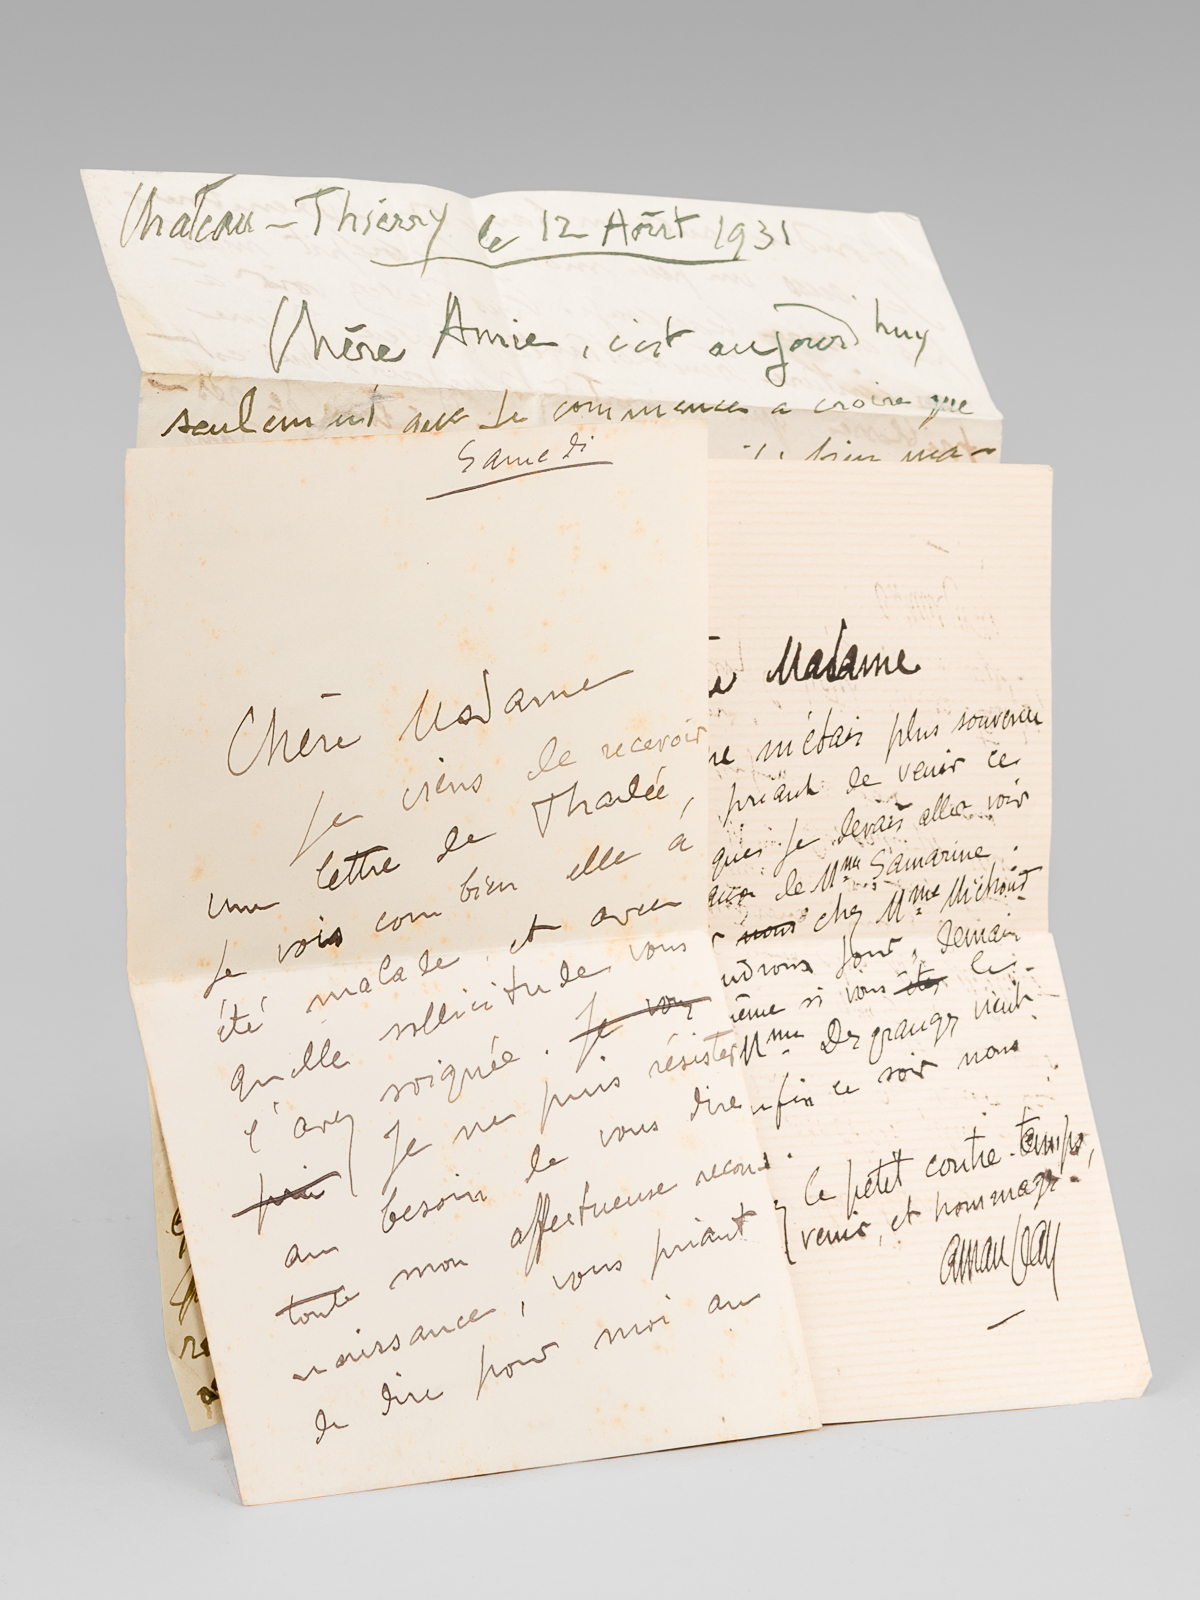 Château-Thierry le 12 Août 1931
Chère Amie, c'est aujourd'huy
seulement que je commence a croire que
bien ma-
Samedi
Chère Madame
Je viens de recevoir
une lettre de Thadée,
je vois combien elle a
été malade, et avec
quelle sollicitude vous
l'avez soignée. Je vous
prie Je ne puis résister
au besoin de vous dire
toute mon affectueuse recon-
naissance, vous priant
de dire pour moi au
Madame
ne m'étais plus souvenu
priant de venir ce
que je devais aller voir
de Mme Samarine.
nous chez Mme Michoud
jour, demain
même si vous êtes le
Mme Desgranges vient
enfin ce soir nous
le petit contre-temps,
venir, et hommages.
aman Jean